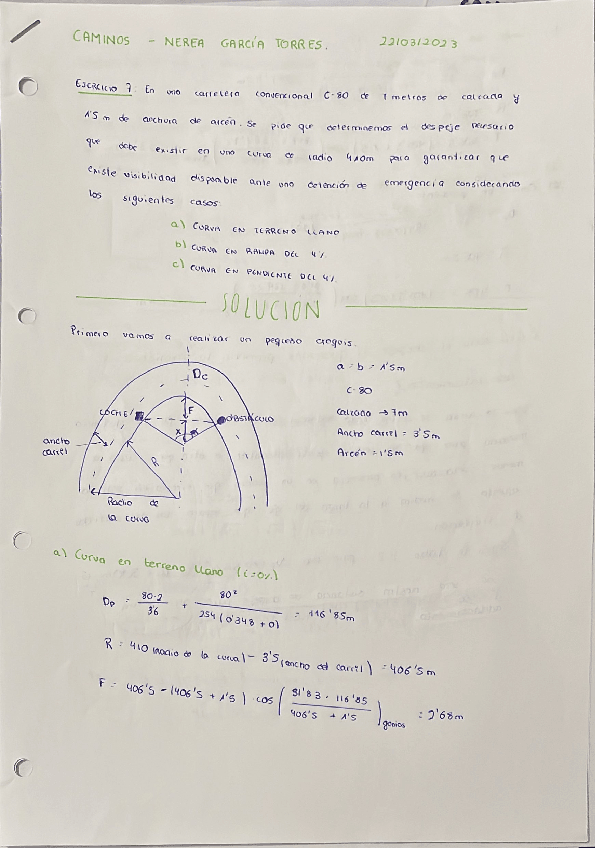 CAMINOS - NEREA GARCÍA TORRES. 22/03/2023
EJERCICIO 7. En una carretera convencional C-80 de 7 metros de calzada y
1'5 m de anchura de arcén. Se pide que determinemos el despeje necesario
que debe existir en una curva de radio 410m para garantizar que
existe visibilidad disponible ante una detención de emergencia considerando
los siguientes casos:
a) CURVA EN TERRENO LLANO
b) CURVA EN RAMPA DEL 4%
c) CURVA EN PENDIENTE DEL 4%.
SOLUCION
Primero vamos a realizar un pequeño croquis.
a = b = 1'5m
C-80
Calzada → 7m
Ancho carril = 3'5m
Arcén = 1'5m
Dc
COCHE
F
OBSTÁCULO
X
ancho
carril
R
Radio de
la curva
a) Curva en terreno llano (i=0%)
Dp = 80·2 / 3'6 + 80² / 254 (0'348 + 0) = 116'85m
R = 410 (radio de la curva) - 3'5 (ancho del carril) = 406'5 m
F = 406'5 - (406'5 + 1'5) cos ( 31'83 · 116'85 / 406'5 + 1'5 ) gonios = 2'68m